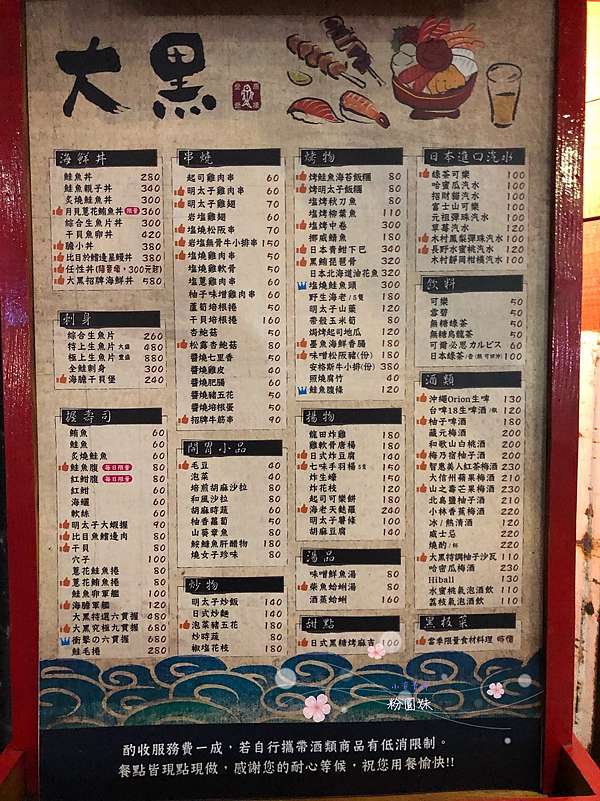 大黑
海鮮丼
鮭魚丼 280
鮭魚親子丼 340
炙燒鮭魚丼 300
月見蔥花鮪魚丼 限量 360
綜合生魚片丼 300
干貝魚卵丼 420
膽小丼 380
比目於鱈邊星鰻丼 380
任性丼(隨蓉種，300元起)
大黑招牌海鮮丼 580
刺身
綜合生魚片 260
特上生魚片 大盛 480
極上生魚片 豐盛 880
全鮭刺身 300
海膽干貝堡 240
握壽司
鮪魚 60
鮭魚 60
炙燒鮭魚 60
鮭魚腹 每日限量 80
紅魽腹 每日限量 80
紅魽 60
海鱺 60
軟絲 60
明太子大蝦握 90
比目魚鱈邊肉 80
干貝 80
穴子 100
蔥花鮭魚捲 80
蔥花鮪魚捲 80
鮭魚卵軍艦 100
海膽軍艦 120
大黑特選六貫握 480
大黑究極九貫握 680
衝擊の六貫握 680
鮭毛捲 280
串燒
起司雞肉串 60
明太子雞肉串 60
明太子雞翅 70
岩塩雞翅 60
塩燒松阪串 70
岩塩無骨牛小排串 150
塩燒雞肉串 50
塩燒雞軟骨 50
塩蔥雞肉串 60
柚子味噌雞肉串 60
蘆筍培根捲 50
干貝培根捲 160
杏鮑菇 50
松露杏鮑菇 80
醬燒七里香 50
醬燒雞皮 40
醬燒肥腸 60
醬燒豬五花 50
醬燒培根蛋 50
招牌牛筋串 90
開胃小品
毛豆 40
泡菜 40
培煎胡麻沙拉 80
和風沙拉 80
胡麻時蔬 60
柚香蘿蔔 50
山葵章魚 60
鮟鱇魚肝醋物 180
燒女子珍味 80
炒物
明太子炒飯 140
日式炒麵 140
泡菜豬五花 150
炒時蔬 80
椒塩花枝 180
烤物
烤鮭魚海苔飯糰 80
烤明太子飯糰 80
塩烤秋刀魚 80
塩烤柳葉魚 110
塩烤中卷 300
挪威鯖魚 180
日本青魽下巴 340
黑鮪琵琶骨 300
日本北海道油花魚 320
塩燒鮭魚頭 180
野生海老/5隻 180
明太子山藥 120
帶殼玉米筍 80
焗烤起司地瓜 120
墨魚海鮮香腸 150
味噌松阪豬(份) 180
安格斯牛小排(份) 380
照燒腐竹 40
鮭魚腹條 120
揚物
龍田炸雞 120
雞軟骨唐楊 120
日式炸豆腐 60
七味手羽楊5隻 150
炸生蠔 150
炸花枝 120
起司可樂餅 80
海老天麩羅 240
明太子薯條 100
胡麻豆腐 140
湯品
味噌鮮魚湯 80
柴魚蛤蜊湯 80
酒蒸蛤蜊 160
甜點
日式黑糖烤麻吉 100
日本進口汽水
綠茶可樂 100
哈蜜瓜汽水 100
招財貓汽水 100
富士山可樂 100
元祖彈珠汽水 100
草莓汽水 120
木村鳳梨彈珠汽水 100
長野水蜜桃汽水 120
木村靜岡柑橘汽水 120
飲料
可樂 50
雪碧 50
無糖綠茶 50
無糖烏龍茶 50
可爾必思カルピス 60
日本綠茶/壺(熱 可回沖) 100
酒類
沖繩Orion生啤 130
台啤18生啤酒/瓶 120
柚子啤酒 180
藏元梅酒 200
和歌山白桃酒 200
梅乃宿柚子酒 200
智惠美人紅茶梅酒 230
大信州蘋果梅酒 210
山之壽芒果梅酒 230
北島鹽柚子酒 210
小林香蕉梅酒 220
冰/熱清酒 120
威士忌 220
燒酌/杯 220
大黑特調柚子沙瓦 110
哈蜜瓜梅酒 230
HiBall 110
水蜜桃氣泡酒飲 110
荔枝氣泡酒飲 110
黑板菜
當季限量食材料理 時價
粉圓妹
酌收服務費一成，若自行攜帶酒類商品有低消限制。
餐點皆現點現做，感謝您的耐心等候，祝您用餐愉快!!